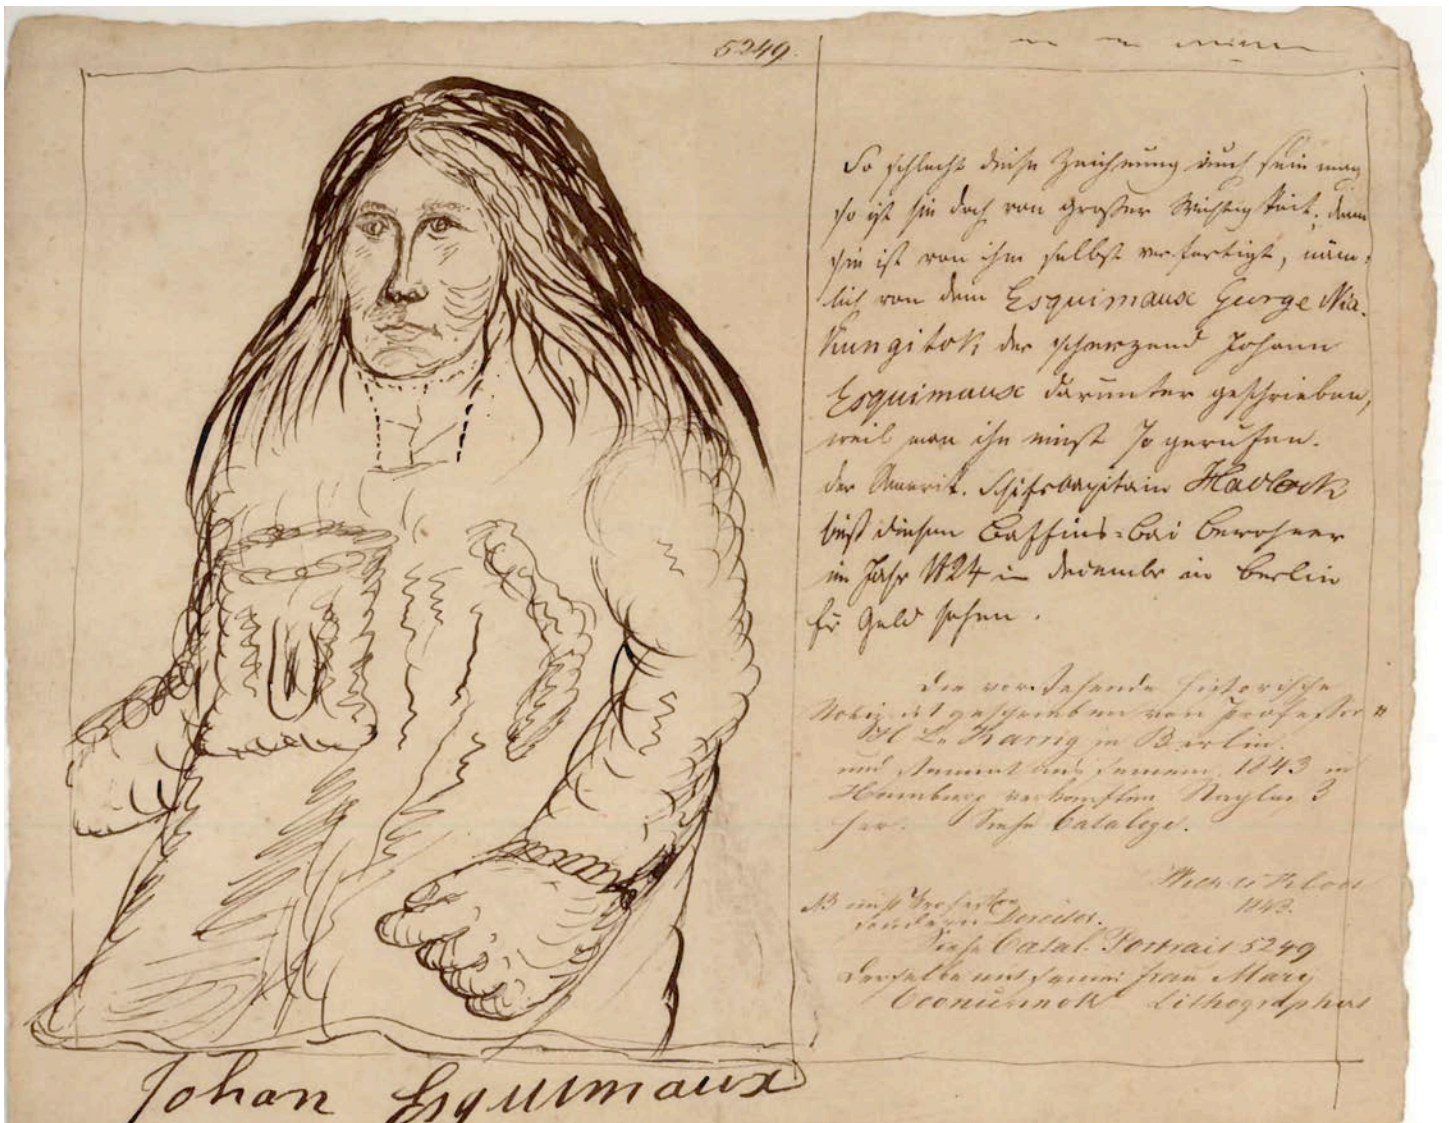 5249.
So schlecht diese Zeichnung auch sein mag
so ist sie doch von großer Wichtigkeit, denn
sie ist von ihm selbst verfertigt, näm-
lich von dem Esquimaux George Nia-
kungitok, der scherzend Johann
Esquimaux darunter geschrieben,
weil man ihn einst so gerufen.
der Amerik. Schifscapitain Hadlock
ließ diesen Baffins-bai bewohner
im Jahr 1824 in decembr in Berlin
für Geld sehen.
Die vorstehende historische
Notiz ist geschrieben von Professor
in Berlin.
und stammt aus seinem 1843 in
Hamburg verkauften
her. Siehe Cataloge.
1843.
NB nicht Professor
sondern Director.
Siehe Catal. Portrait 5249
Derselbe mit seiner Frau Mary
Coonunnok Lithographirt
Johan Esquimaux